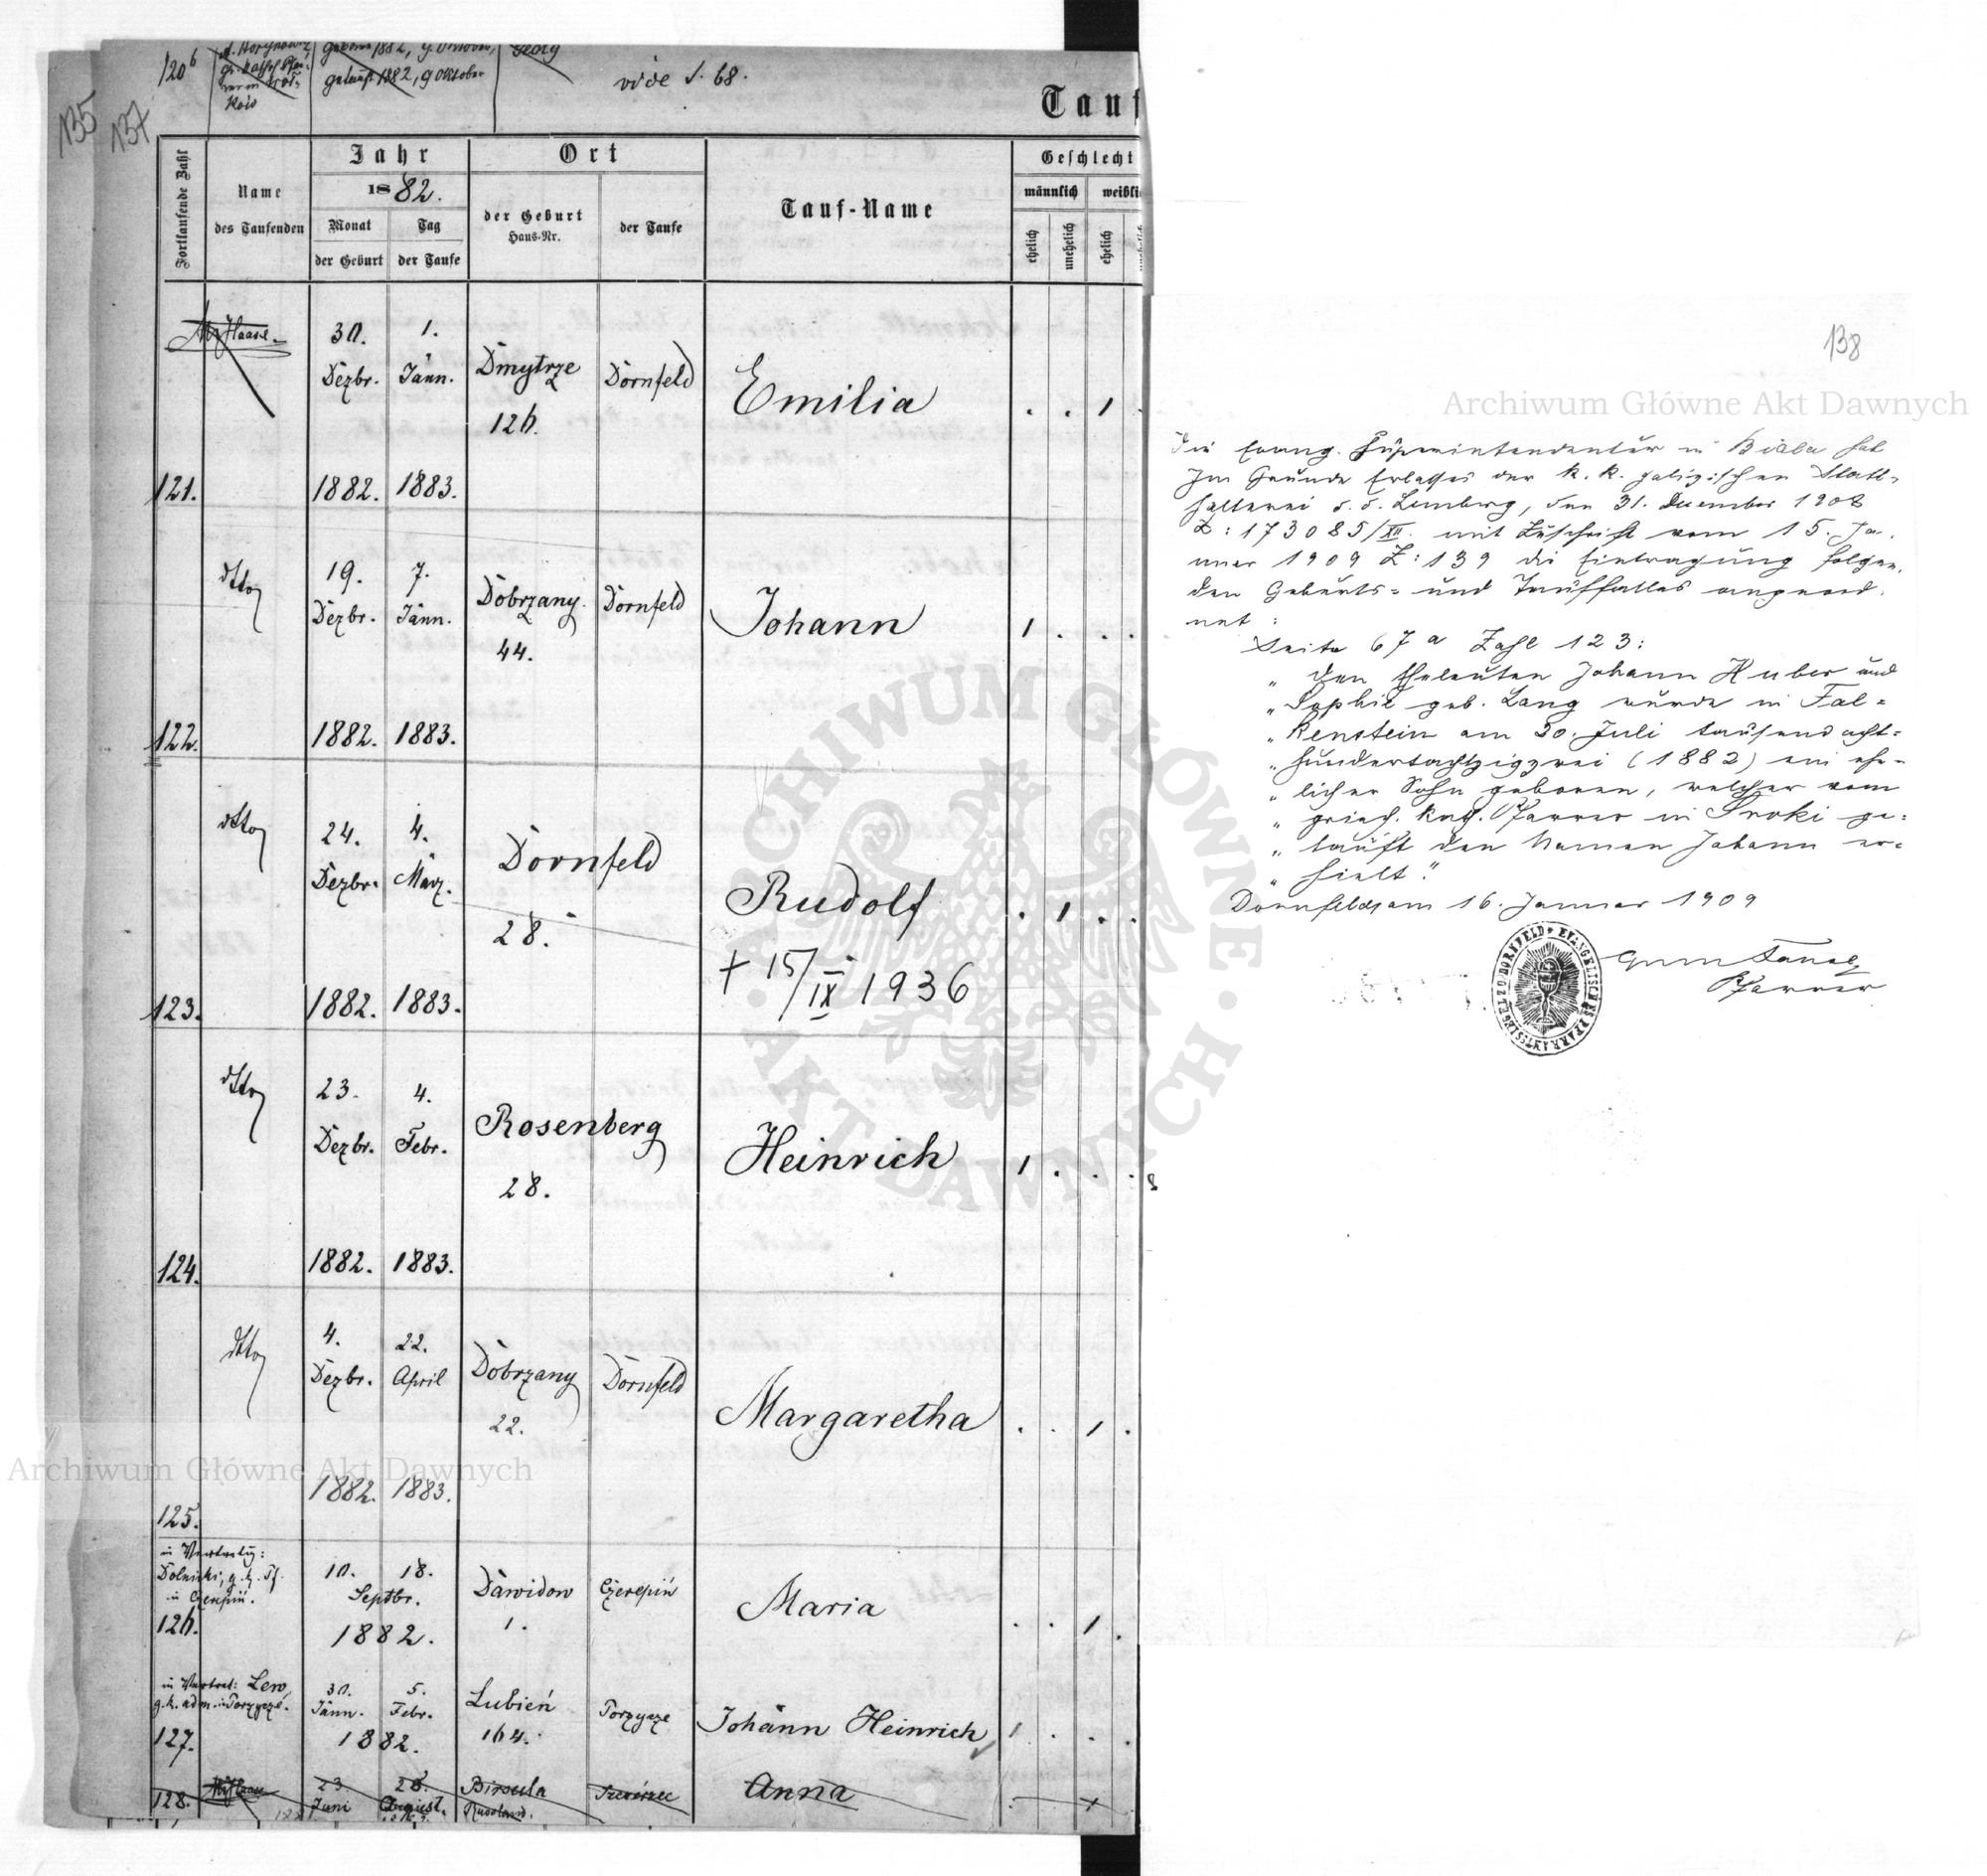 120b
geboren 1882, 9. Oktober,
Georg
getauft 1882, 9 Oktober
vide S. 68.
135
137
Tauf
Fortlaufende Zahl
Name
des Taufenden
Jahr
1882.
Monat
der Geburt
Tag
der Taufe
Ort
der Geburt
Haus-Nr.
der Taufe
Tauf-Name
Geschlecht
männlich
ehelich
unehelich
ehelich
Haase
30. Dezbr. 1. Jänn. Dmytrze Dornfeld Emilia . . 1
126.
121. 1882. 1883.
dtto 19. Dezbr. 7. Jänn. Dobrzany Dornfeld Johann 1 . . .
44.
122. 1882. 1883.
dtto 24. Dezbr. 4. März. Dornfeld Rudolf . 1 . .
28.
+ 15/IX 1936
123. 1882. 1883.
dtto 23. Dezbr. 4. Febr. Rosenberg Heinrich 1 . . .
28.
124. 1882. 1883.
dtto 4. Dezbr. 22. April Dobrzany Dornfeld Margaretha . . 1 .
22.
1882. 1883.
125.
in Vertretg:
in Czerepin.
10. 18. Septbr. Dawidow Czerepiń Maria . . 1 .
1.
126. 1882.
in Vertret: Lew,
30. Jänn. 5. Febr. Lubień Porzycze Johann Heinrich 1 . . .
127. 1882. 164.
128. 23. Juni 28. August. Birsula Anna
Russland.
138
Die Evang. Superintendentur in Biala hat
Im Grunde Erlasses der k. k. galizischen Statt-
halterei d. d. Lemberg, den 31. Dezember 1908
Z: 173085/XII. mit Zuschrift vom 15. Jä-
nner 1909 Z: 139 die Eintragung folgen-
den Geburts- und Tauffalles angeord-
net:
Seite 67a Zahl 123:
„ Den Eheleuten Johann Huber und
„ Sophie geb. Lang wurde in Fal-
„ kenstein am 30. Juli tausendacht-
„ hundertachtzigzwei (1882) ein ehe-
„ licher Sohn geboren, welcher vom
„ griech. kath. Pfarrer in Sroki ge-
„ tauft den Namen Johann er-
„ hielt."
Dornfeld, am 16. Januar 1909
Pfarrer
Archiwum Główne Akt Dawnych
Archiwum Główne Akt Dawnych
ARCHIWUM GŁÓWNE AKT DAWNYCH